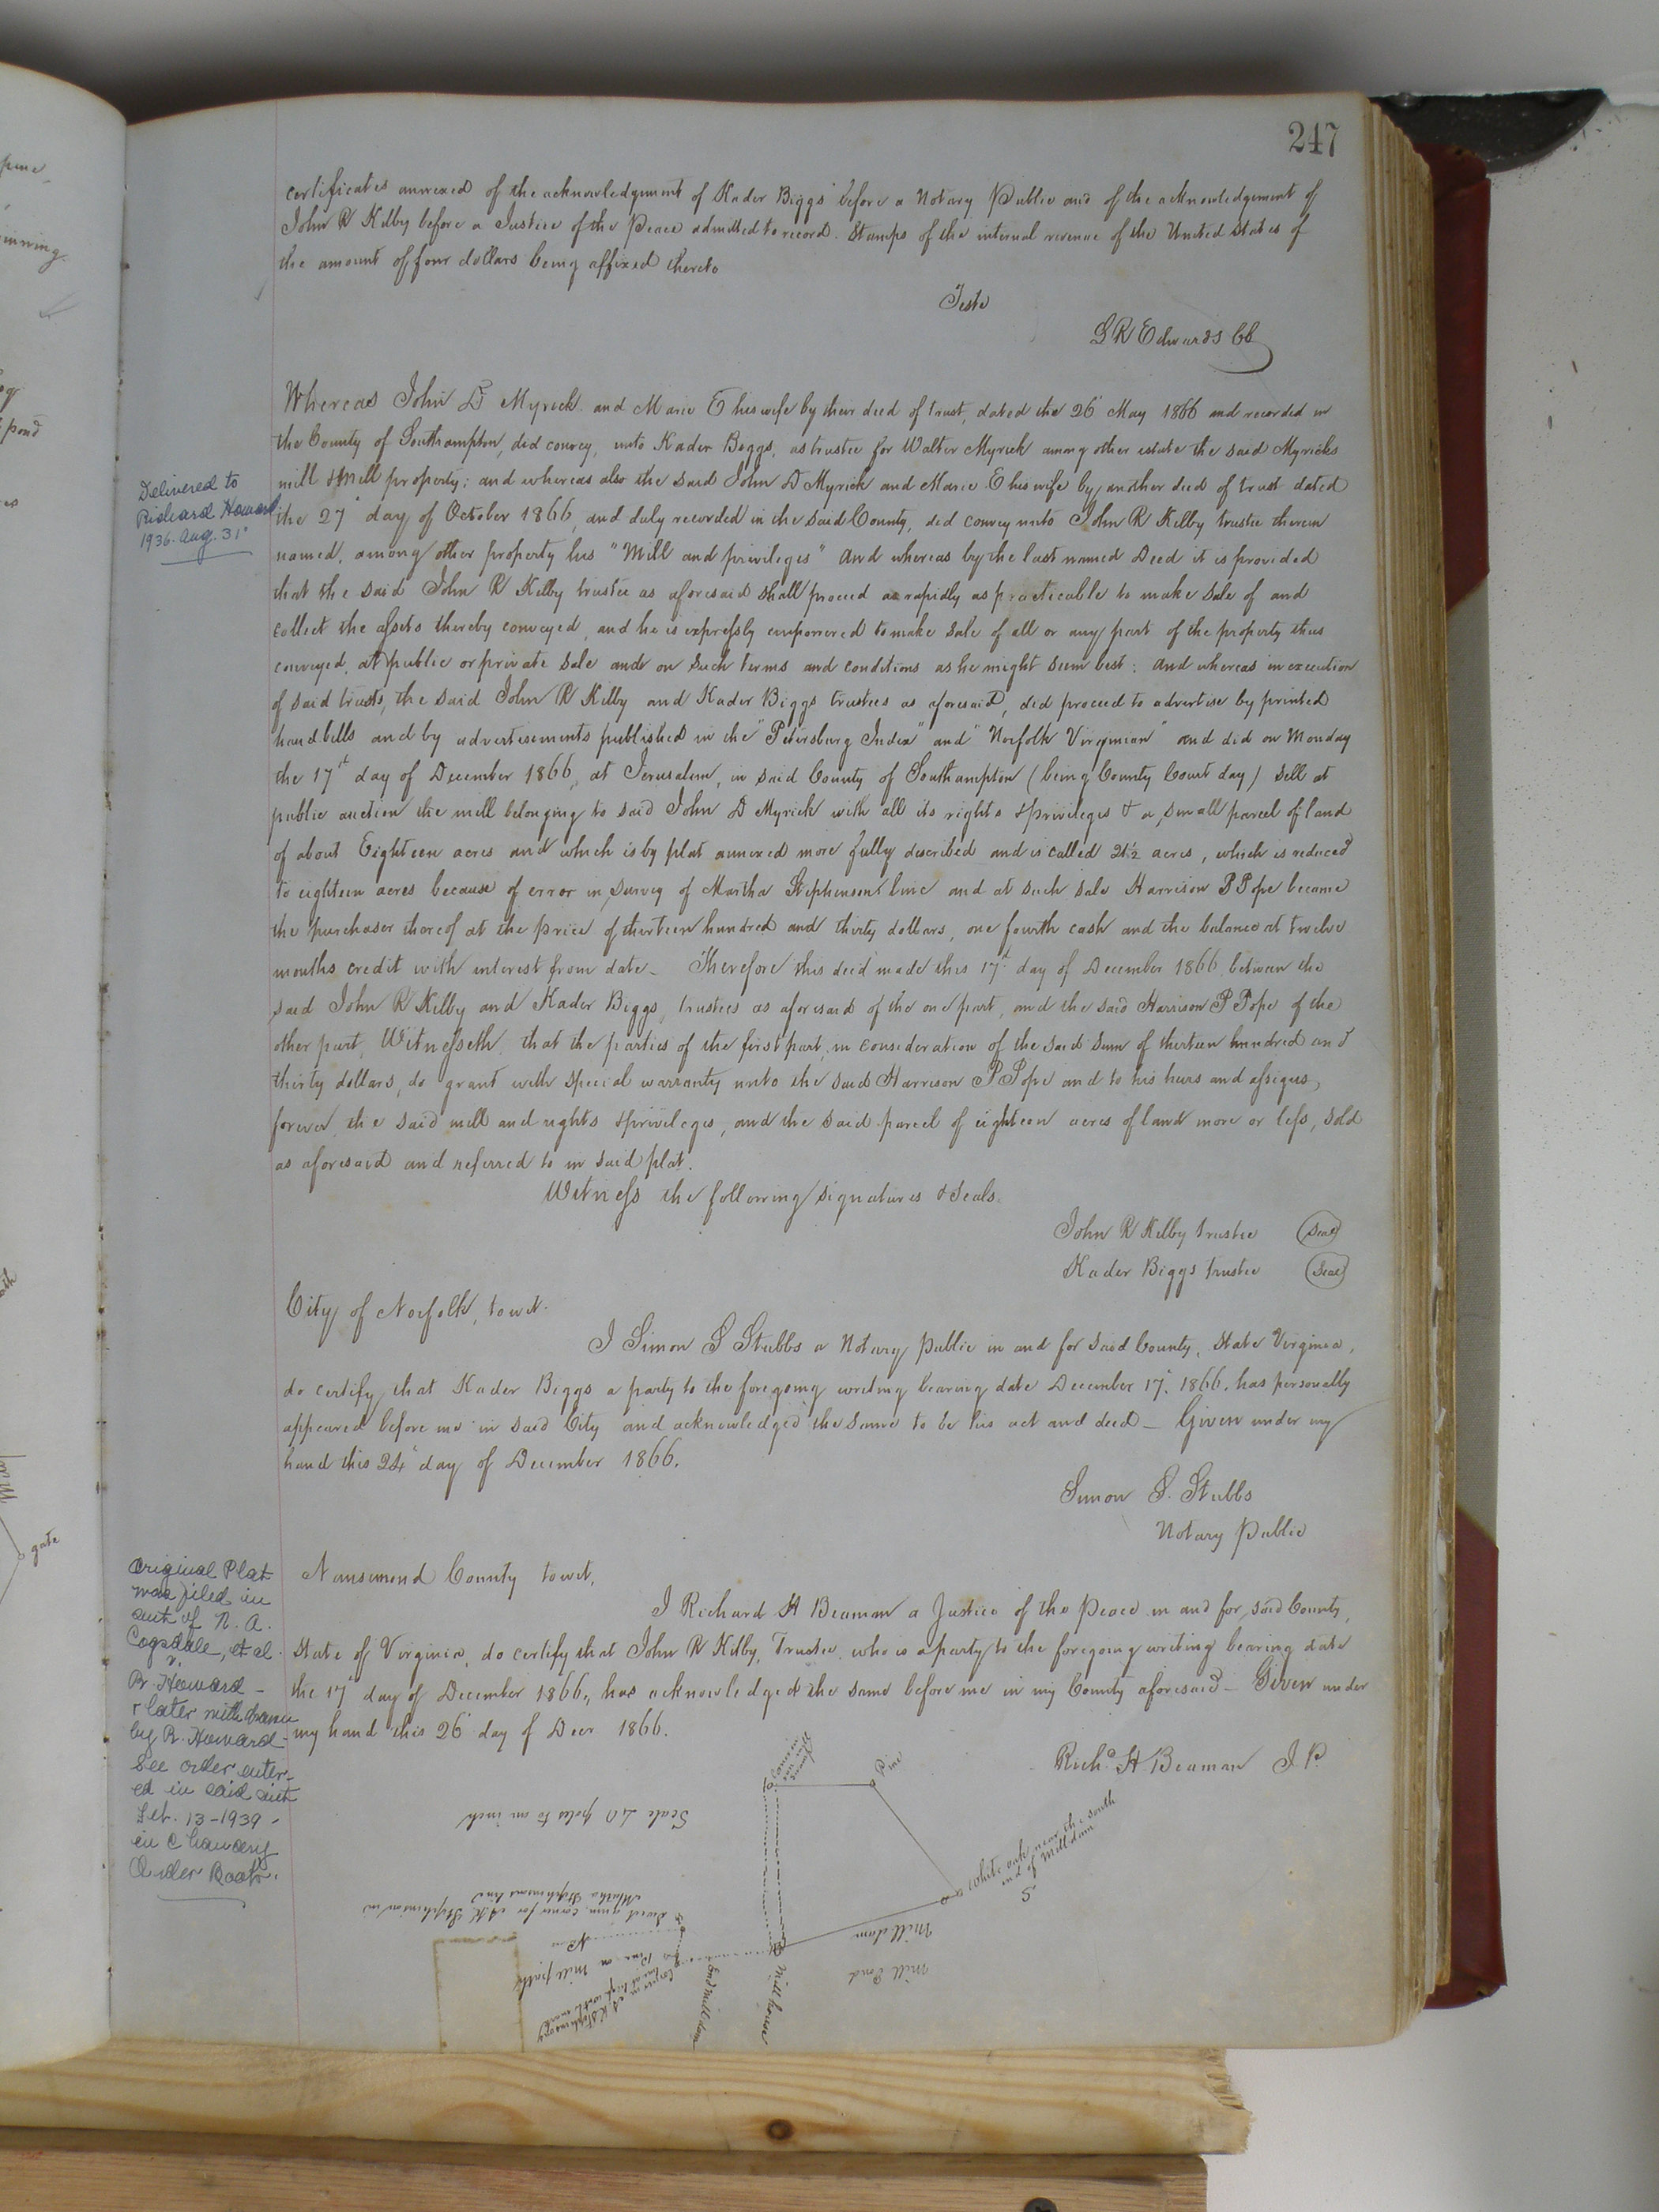 247
certificates annexed of the acknowledgement of Kader Biggs before a Notary Public and of the acknowledgement of
John R Kilby before a Justice of the Peace admitted to record. Stamps of the internal revenue of the United States of
the amount of four dollars being affixed thereto
Teste
L R Edwards Cl
Whereas John D Myrick and Marie E his wife by their deed of trust, dated the 26 May 1866 and recorded in
the County of Southampton, did convey, unto Kader Biggs, as trustee for Walter Myrick among other estate the said Myricks
mill & mill property; and whereas also the said John D Myrick and Marie E his wife by another deed of trust dated
the 27 day of October 1866, and duly recorded in the said County, did convey unto John R Kilby trustee therein
named, among other property his "Mill and privileges" And whereas by the last named Deed it is provided
that the said John R Kilby trustee as aforesaid shall proceed as rapidly as practicable to make sale of and
collect the assets thereby conveyed, and he is expressly empowered to make sale of all or any part of the property thus
conveyed, at public or private sale and on such terms and conditions as he might seem best: And whereas in execution
of said trusts, the said John R Kilby and Kader Biggs trustees as aforesaid, did proceed to advertise by printed
hand bills and by advertisements published in the "Petersburg Index" and "Norfolk Virginian" and did on Monday
the 17th day of December 1866, at Jerusalem, in said County of Southampton (being County Court day) sell at
public auction the mill belonging to said John D Myrick with all its rights & privileges & a small parcel of land
of about Eighteen acres and which is by plat annexed more fully described and is called 21½ acres, which is reduced
to eighteen acres because of error in survey of Martha Stephenson's line and at such sale Harrison P Pope became
the purchaser thereof at the price of thirteen hundred and thirty dollars, one fourth cash and the balance at twelve
months credit with interest from date - Therefore this deed made this 17th day of December 1866, between the
said John R Kilby and Kader Biggs, trustees as aforesaid of the one part, and the said Harrison P Pope of the
other part, Witnesseth, that the parties of the first part, in consideration of the said sum of thirteen hundred and
thirty dollars, do grant with special warranty unto the said Harrison P Pope and to his heirs and assigns,
forever, the said mill and rights & privileges, and the said parcel of eighteen acres of land more or less, sold
as aforesaid and referred to in said plat.
Witness the following signatures & seals.
John R Kilby trustee (Seal)
Kader Biggs trustee (Seal)
Delivered to
Richard Howard
1936. Aug. 31
City of Norfolk, to wit.
I Simon S Stubbs a Notary Public in and for said County, State Virginia,
do certify, that Kader Biggs a party to the foregoing writing bearing date December 17, 1866, has personally
appeared before me in said City and acknowledged the same to be his act and deed - Given under my
hand this 24 day of December 1866.
Simon S. Stubbs
Notary Public
Nansemond County to wit,
I Richard H Beaman a Justice of the Peace in and for said County,
State of Virginia, do certify that John R Kilby, Trustee, who is a party to the foregoing writing bearing date
the 17th day of December 1866, has acknowledged the same before me in my County aforesaid - Given under
my hand this 26 day of Decr 1866.
Richd H Beaman J. P.
Original Plat
was filed in
suit of N. A.
Cogsdale, et al.
v.
R. Howard -
& later withdrawn
by R. Howard -
See order enter-
ed in said suit
Feb. 13-1939 -
in Chancery
Order Book.
Pine
Scale 40 poles to an inch
White oak near the south
end of Mill dam
S
Mill dam
Mill Pond
Mill house
Sweet gum corner for A K Stephenson in
Martha Stephensons line
New
Pine on Mill path